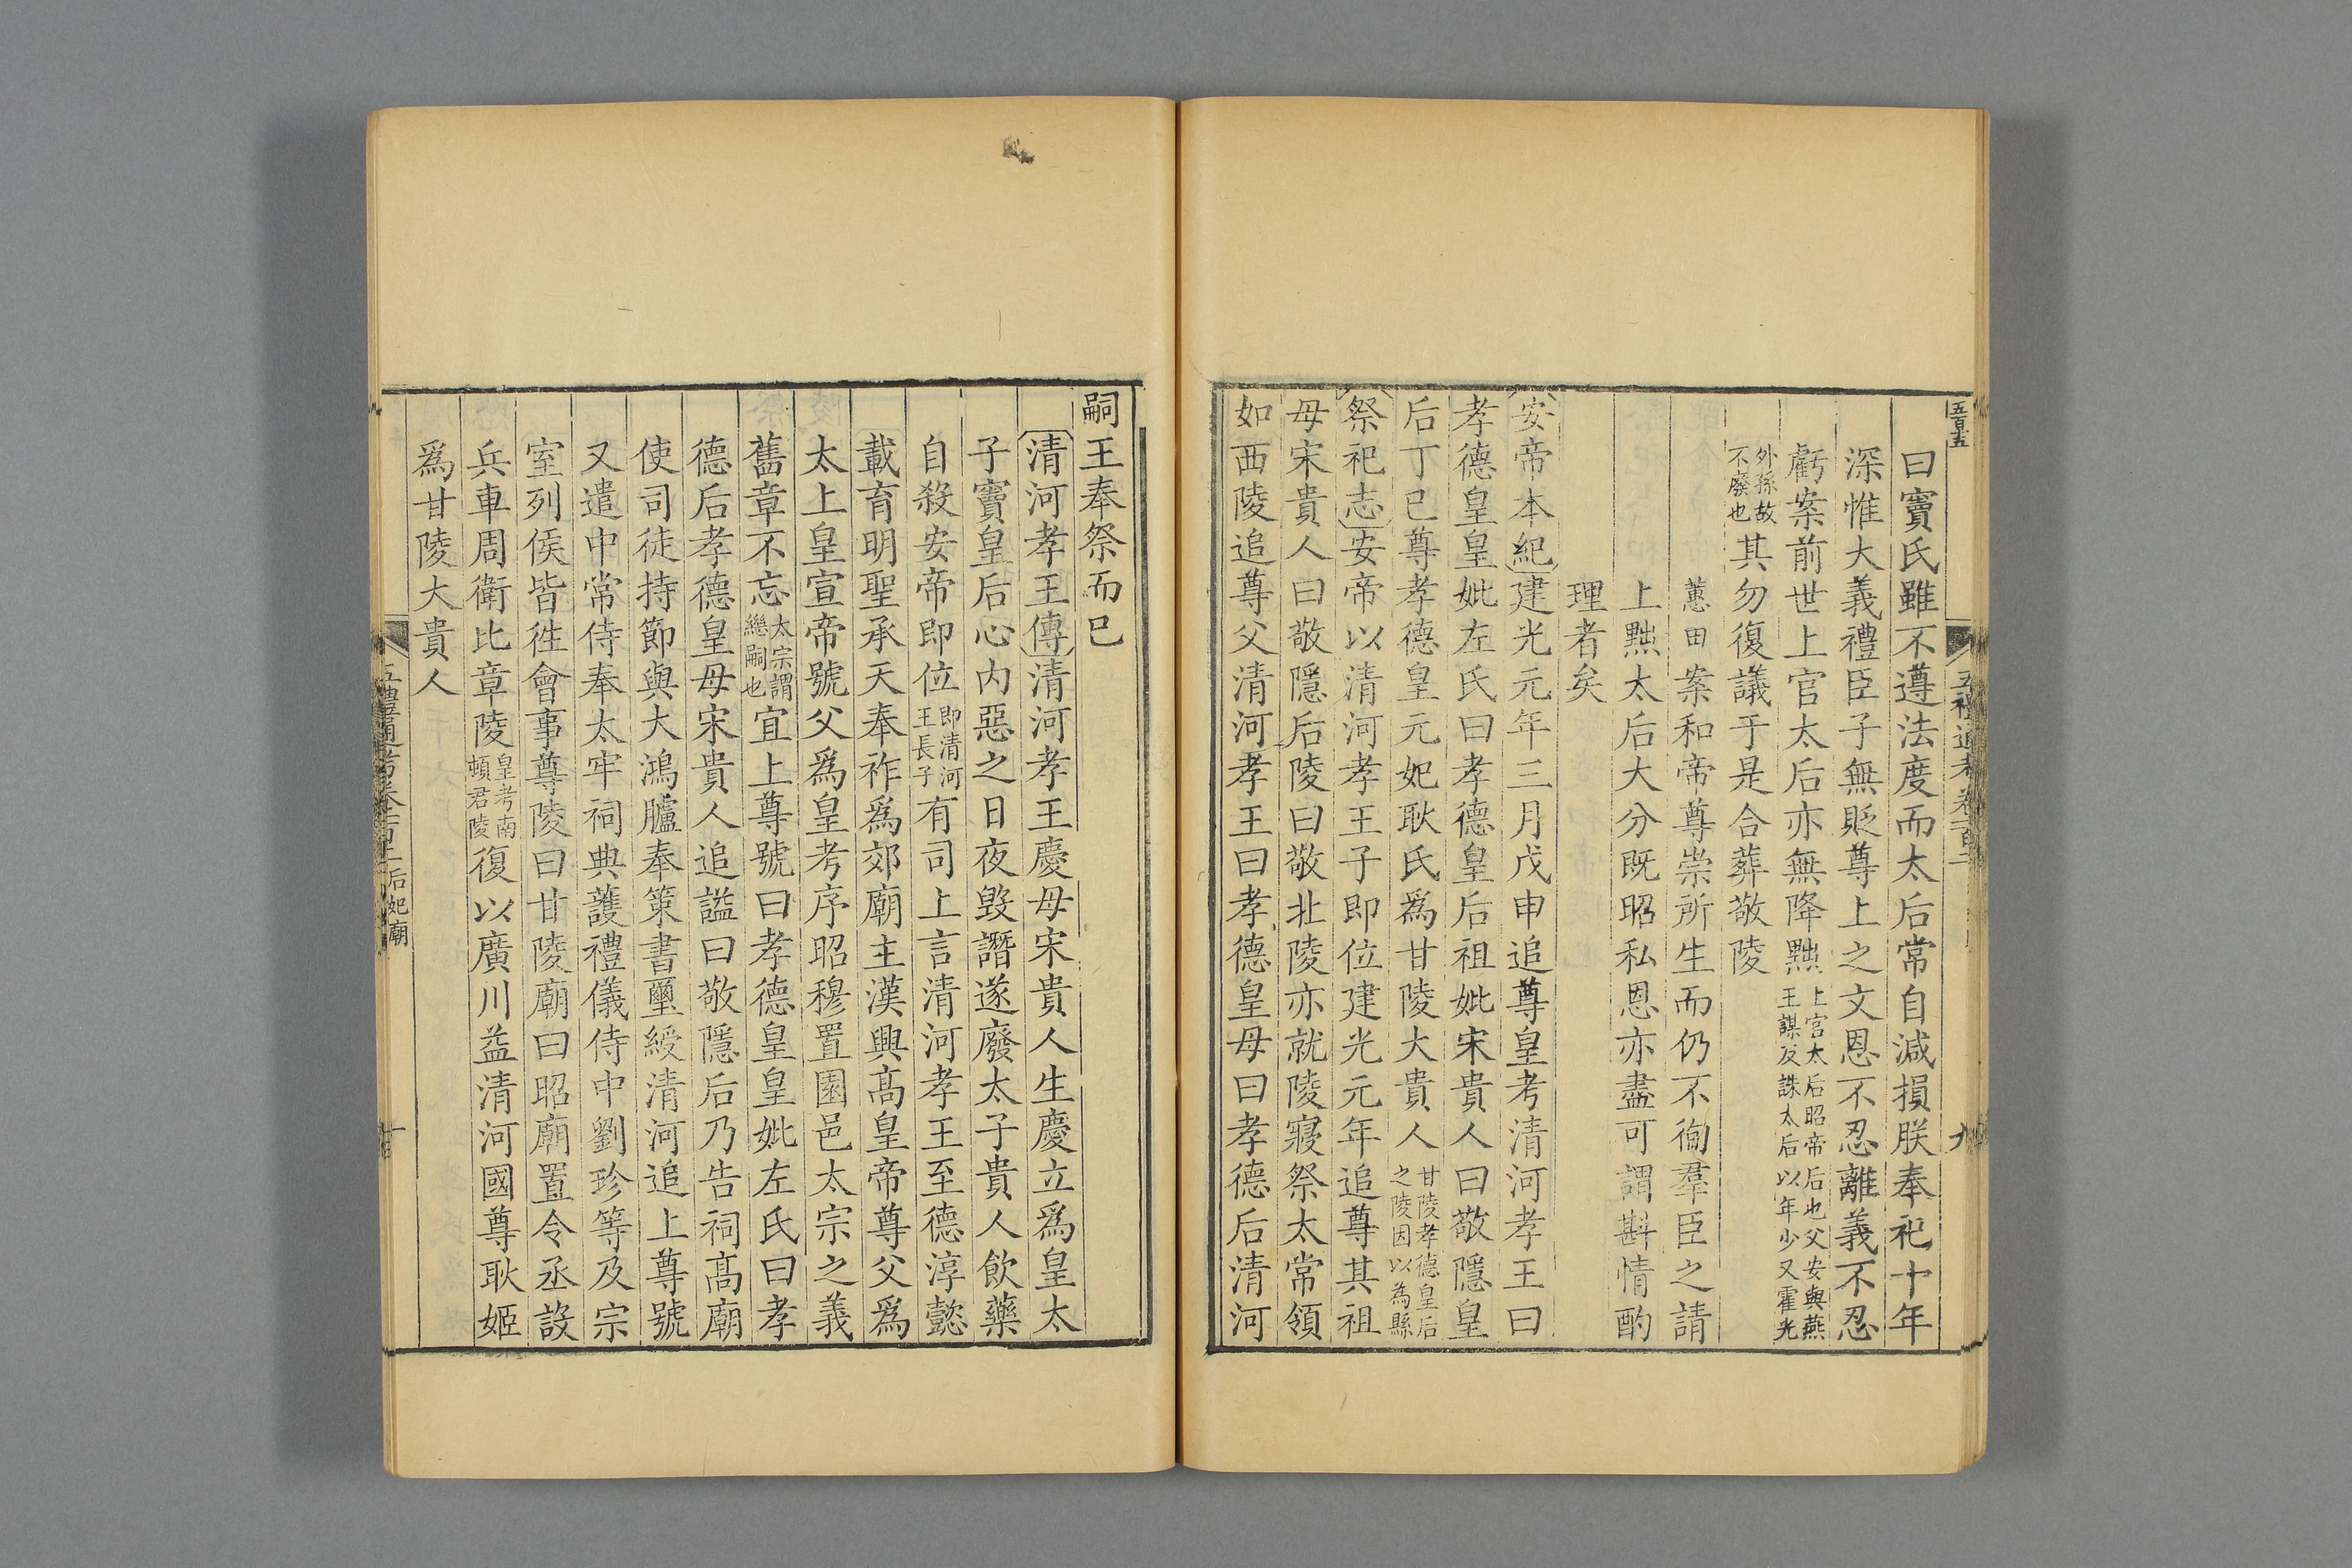 五百五
五禮通考卷一百二
九
曰竇氏雖不遵法度而太后常自減損朕奉祀十年
深惟大義禮臣子無貶尊上之文恩不忍離義不忍
虧案前世上官太后亦無降黜上官太后昭帝后也父安與燕王謀反誅太后以年少又霍光
外孫故不廢也其勿復議于是合葬敬陵
蕙田案和帝尊崇所生而仍不徇羣臣之請
上黜太后大分既昭私恩亦盡可謂斟情酌
理者矣
安帝本紀建光元年三月戊申追尊皇考清河孝王曰
孝德皇皇妣左氏曰孝德皇后祖妣宋貴人曰敬隱皇
后丁巳尊孝德皇元妃耿氏爲甘陵大貴人甘陵孝德皇后之陵因以為縣
祭祀志安帝以清河孝王子即位建光元年追尊其祖
母宋貴人曰敬隱后陵曰敬北陵亦就陵寢祭太常領
如西陵追尊父清河孝王曰孝德皇母曰孝德后清河
嗣王奉祭而已
清河孝王傳清河孝王慶母宋貴人生慶立爲皇太
子竇皇后心内惡之日夜毀譖遂廢太子貴人飲藥
自殺安帝即位即清河王長子有司上言清河孝王至德淳懿
載育明聖承天奉祚爲郊廟主漢興高皇帝尊父爲
太上皇宣帝號父爲皇考序昭穆置園邑太宗之義
舊章不忘太宗謂繼嗣也宜上尊號曰孝德皇皇妣左氏曰孝
德后孝德皇母宋貴人追諡曰敬隱后乃告祠高廟
使司徒持節與大鴻臚奉策書璽綬清河追上尊號
又遣中常侍奉太牢祠典護禮儀侍中劉珍等及宗
室列侯皆徃會事尊陵曰甘陵廟曰昭廟置令丞設
兵車周衛比章陵皇考南頓君陵復以廣川益清河國尊耿姬
爲甘陵大貴人
五禮通考卷一百二 后妃廟
十